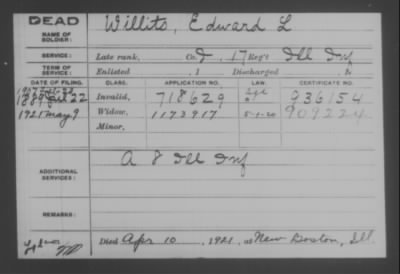 DEAD
NAME OF SOLDIER:
Willits, Edward L
SERVICE:
Late rank, Co. I, 17 Reg't Ill Inf
TERM OF SERVICE:
Enlisted , 1 Discharged , 1
DATE OF FILING. CLASS. APPLICATION NO. LAW. CERTIFICATE NO.
22 Invalid, 718629 936154
1921 May 9 Widow, 1173917 5-1-20 909224
Minor,
ADDITIONAL SERVICES:
A 8 Ill Inf
REMARKS:
Died Apr 10, 1921, at New Boston, Ill.